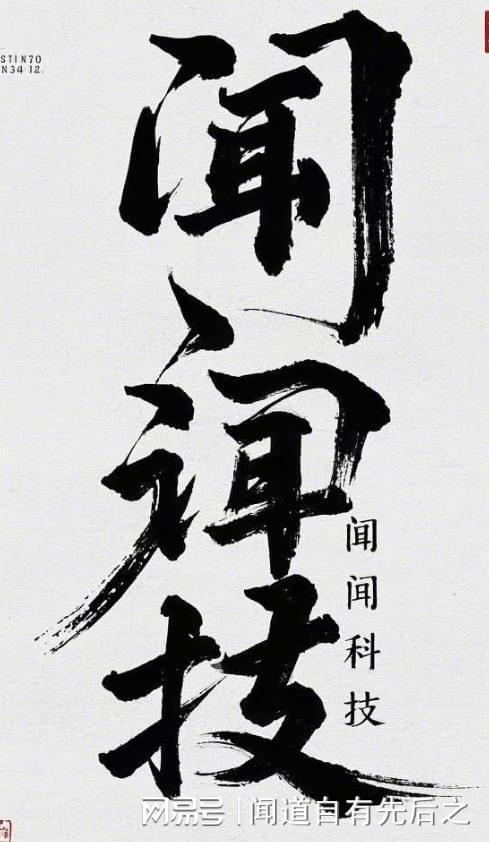 STIN70
N34 12.
闻技
闻闻科技
网易号 | 闻道自有先后之